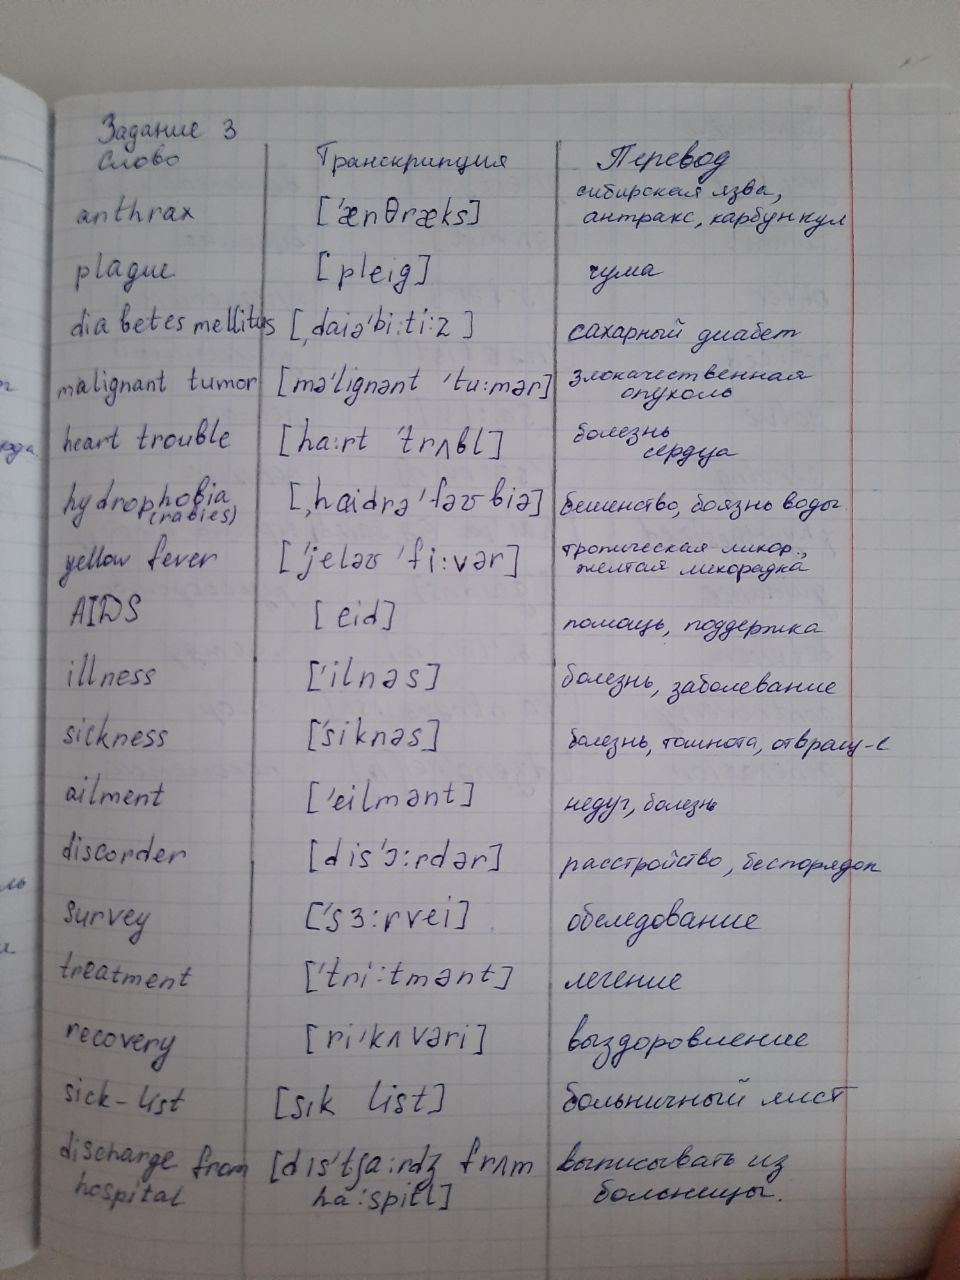 Задание 3
слово Транскрипция Перевод
anthrax [ˈænθræks] сибирская язва,
антракс, карбункул
plague [pleig] чума
diabetes mellitus [ˌdaiəˈbi:ti:z] сахарный диабет
malignant tumor [məˈlignənt ˈtu:mər] злокачественная
опухоль
heart trouble [ha:rt ˈtrʌbl] болезнь
сердца
hydrophobia [ˌhaidrəˈfəʊbiə] бешенство, боязнь воды
(rabies)
yellow fever [ˈjeləʊ ˈfi:vər] тропическая лихор.,
желтая лихорадка
AIDS [eid] помощь, поддержка
illness [ˈilnəs] болезнь, заболевание
sickness [ˈsiknəs] болезнь, тошнота, отвращ-е
ailment [ˈeilmənt] недуг, болезнь
discorder [disˈɔ:rdər] расстройство, беспорядок
survey [ˈsɜ:rvei] обследование
treatment [ˈtri:tmənt] лечение
recovery [riˈkʌvəri] выздоровление
sick-list [sɪk lɪst] больничный лист
discharge from [dɪsˈtʃa:rdʒ frʌm выписывать из
hospital ha:spitl] больницы.